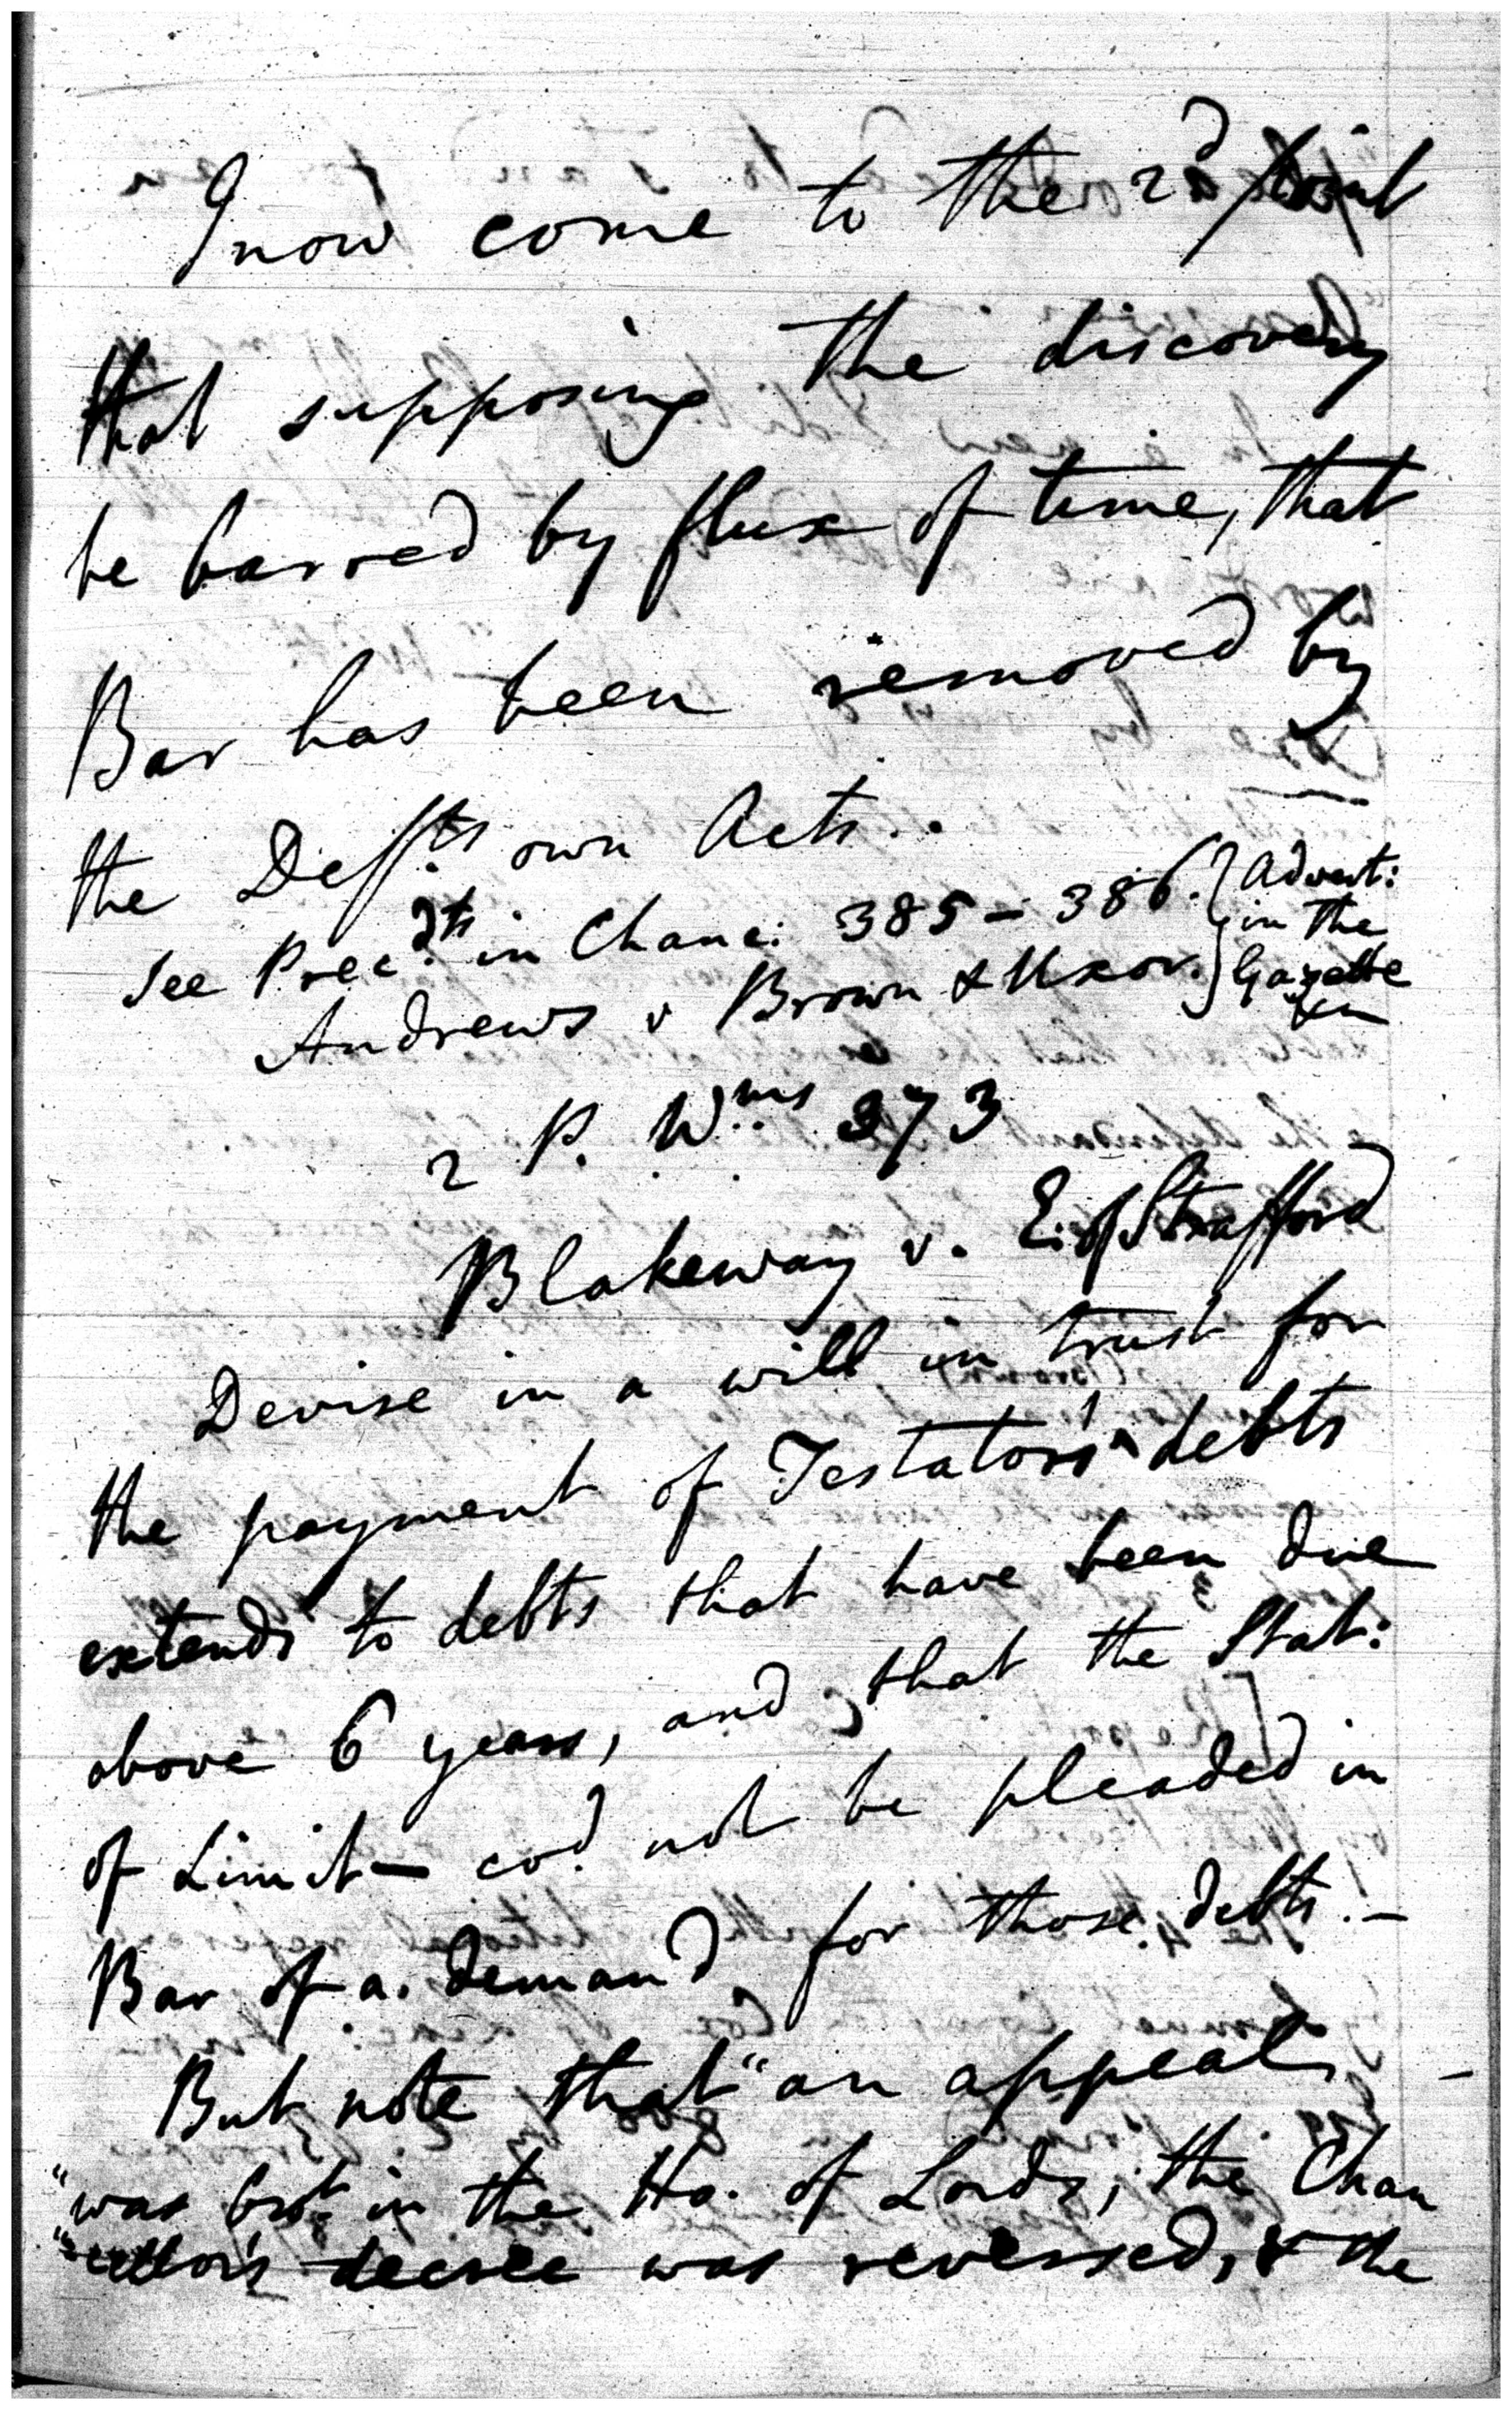 I now come to the 2d point
that supposing the discovery
be barred by flux of time, that
Bar has been removed by
the Deffts own Acts..
See Precdts in Chanc: 385 – 386. } Advert:
Andrews v Brown & Uxor. } in the
Gazette
2 P. Wms 373
Blakeway v. E. of Strafford
Devise in a will in trust for
the payment of Testator's debts
extends to debts that have been due
above 6 years, and, that the Stat:
of Limit— cod. not be pleaded in
Bar of a. demand for those debts.—
But note that "an appeal –
"was brot. in the Ho. of Lords, the Chan
"cellor's decree was reversed, & the